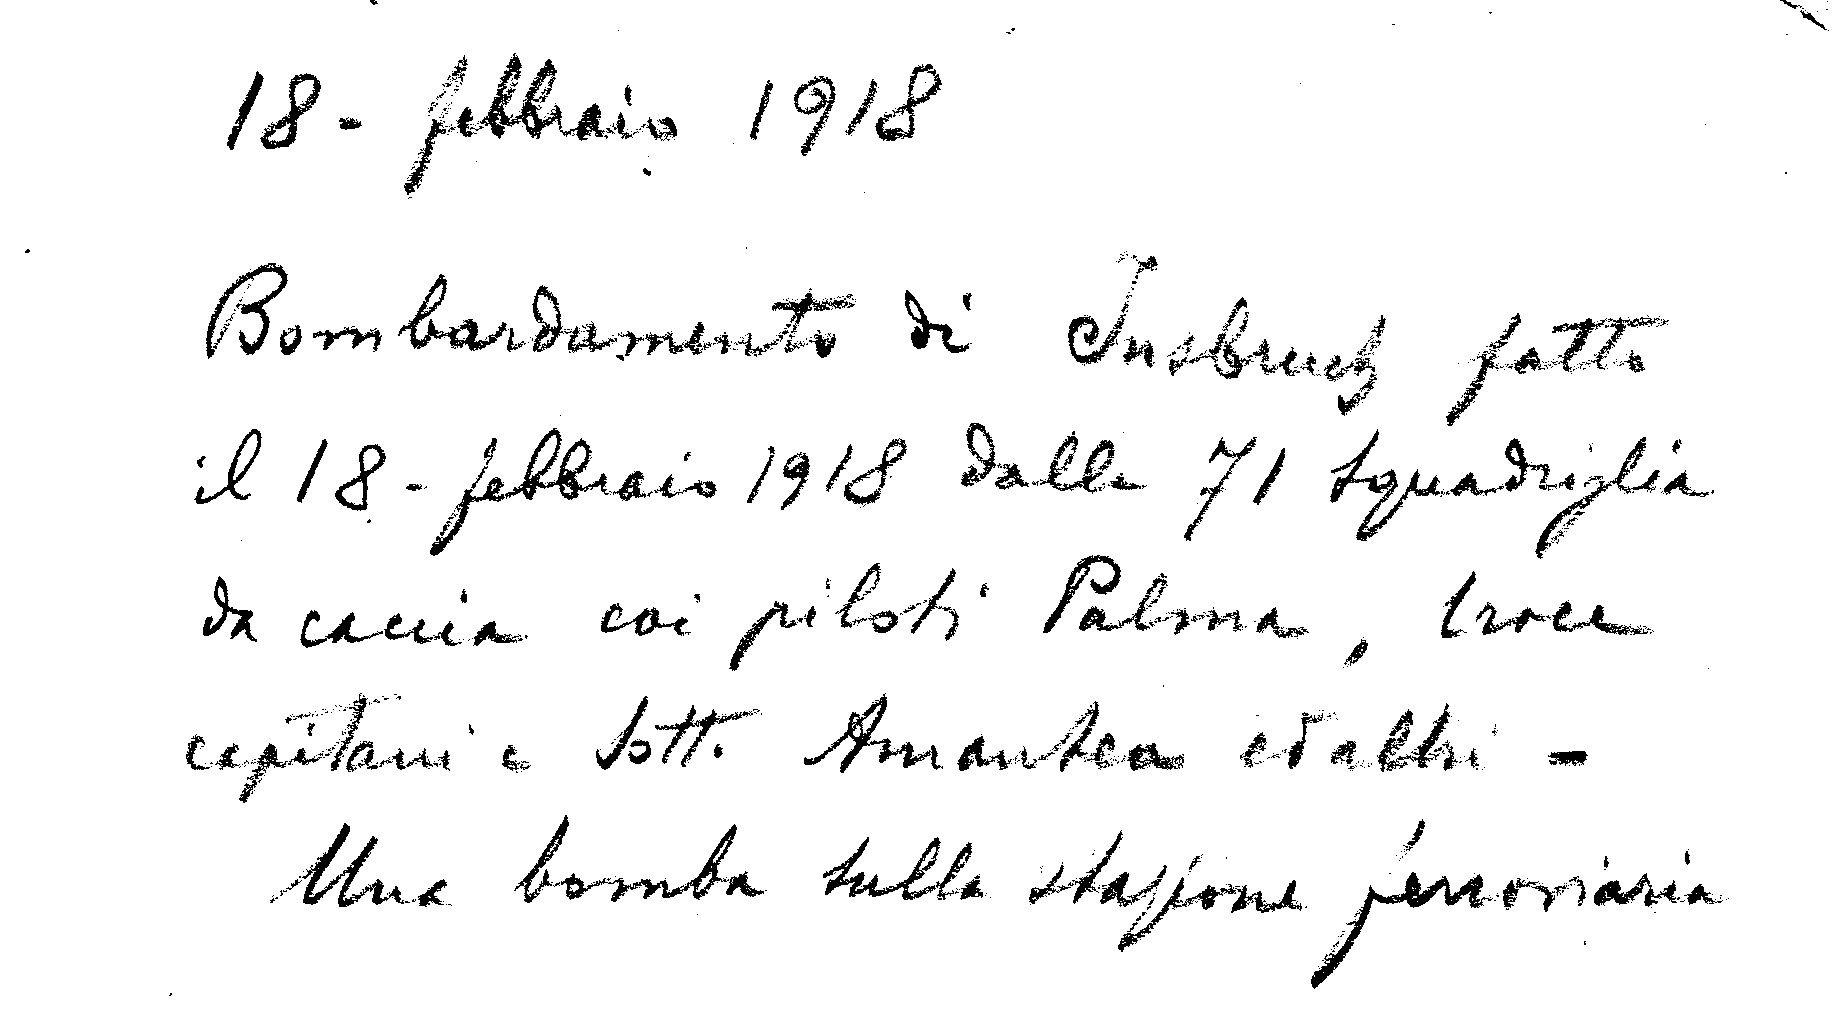 18 - febbraio 1918
Bombardamento di Insbruck fatto
il 18 - febbraio 1918 dalla 71 squadriglia
da caccia coi piloti Palma, Croce
capitani e Sott. Amantea ed altri -
Una bomba sulla stazione ferroviaria